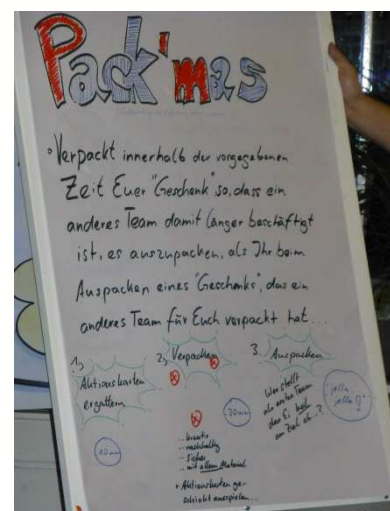 Pack'mas
Verpackt innerhalb der vorgegebenen
Zeit Euer "Geschenk" so, dass ein
anderes Team damit länger beschäftigt
ist, es auszupacken, als Ihr beim
Auspacken eines "Geschenks", das ein
anderes Team für Euch verpackt hat...
1.)
Aktionskarten
ergattern
10 min
2.) Verpacken
20 min
...kreativ
...nachhaltig
...sicher
...mit allem Material
+ Aktionskarten ge-
schickt ausspielen...
3. Auspacken
Wer stellt
als erstes Team
das Ei heil
am Ziel ab..?